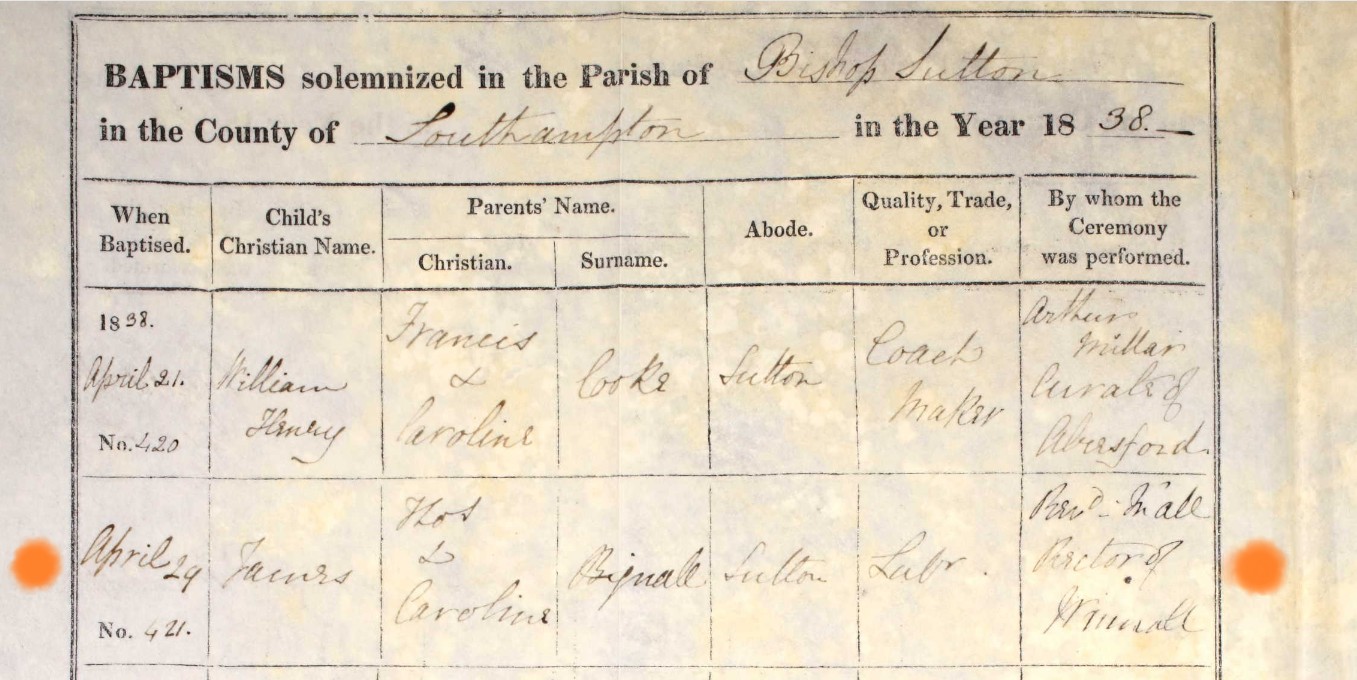 BAPTISMS solemnized in the Parish of Bishop Sutton
in the County of Southampton in the Year 18 38.
When Baptised.
Child's Christian Name.
Parents' Name.
Christian.
Surname.
Abode.
Quality, Trade, or Profession.
By whom the Ceremony was performed.
1838.
April 21.
No. 420
William
Henry
Francis
&
Caroline
Cooke
Sutton
Coach
Maker
Arthur
Millar
Curate of
Alresford.
April 29
No. 421.
James
Thos
&
Caroline
Bignall
Sutton
Labr.
Revd.
Rector of
Winnall